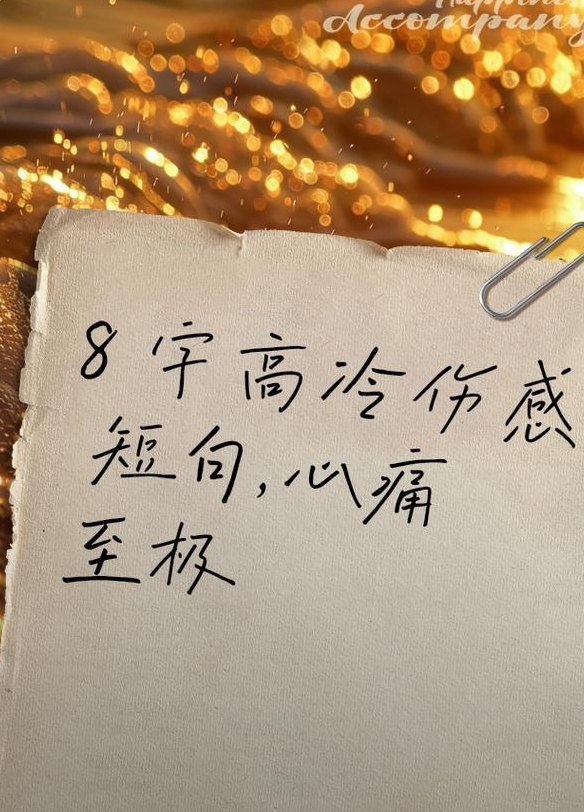 Happiness
Accompany
8字高冷伤感
短句,心痛
至极